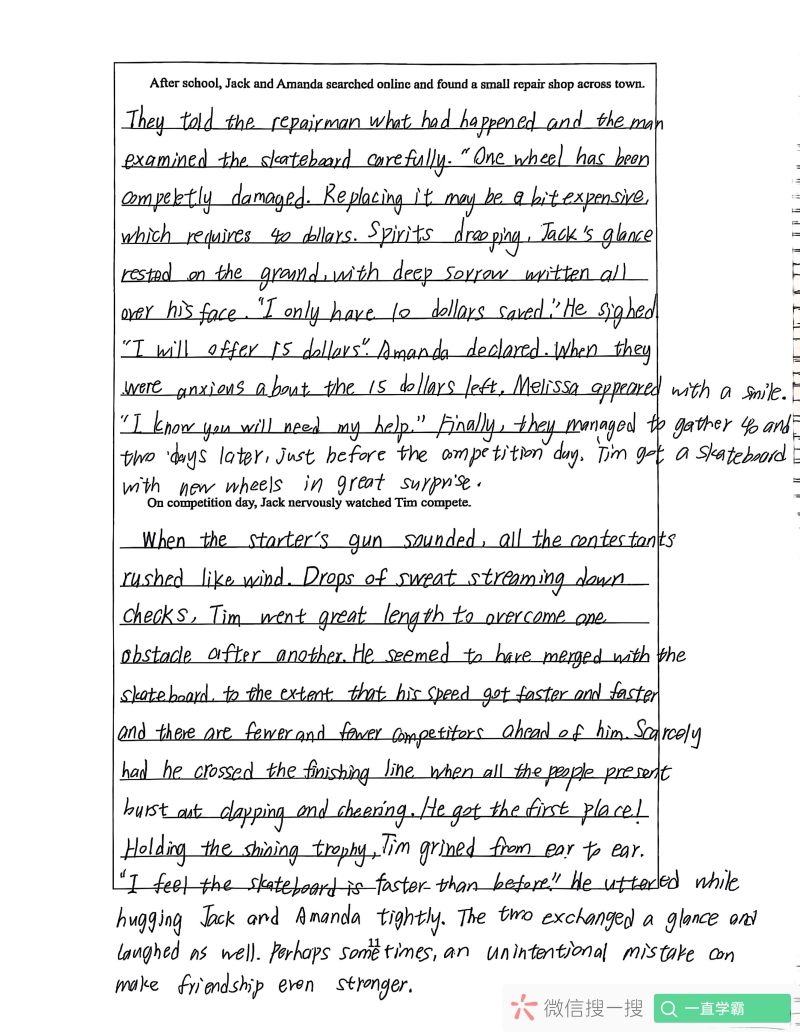 After school, Jack and Amanda searched online and found a small repair shop across town.
They told the repairman what had happened and the man
examined the skateboard carefully. "One wheel has been
compeletly damaged. Replacing it may be a bit expensive,
which requires 40 dollars. Spirits drooping, Jack's glance
rested on the ground, with deep sorrow written all
over his face. "I only have 10 dollars saved." He sighed
"I will offer 15 dollars". Amanda declared. When they
were anxious about the 15 dollars left, Melissa appeared with a smile.
"I know you will need my help." Finally, they managed to gather 40 and
two days later, just before the competition day. Tim got a skateboard
with new wheels in great surprise.
On competition day, Jack nervously watched Tim compete.
When the starter's gun sounded, all the contestants
rushed like wind. Drops of sweat streaming down
checks, Tim went great length to overcome one
obstacle after another. He seemed to have merged with the
skateboard, to the extent that his speed got faster and faster
and there are fewer and fewer competitors ahead of him. Scarcely
had he crossed the finishing line when all the people present
burst out clapping and cheering. He got the first place!
Holding the shining trophy, Tim grined from ear to ear.
"I feel the skateboard is faster than before." He uttered while
hugging Jack and Amanda tightly. The two exchanged a glance and
laughed as well. Perhaps sometimes, an unintentional mistake can
11
make friendship even stronger.
微信搜一搜 一直学霸